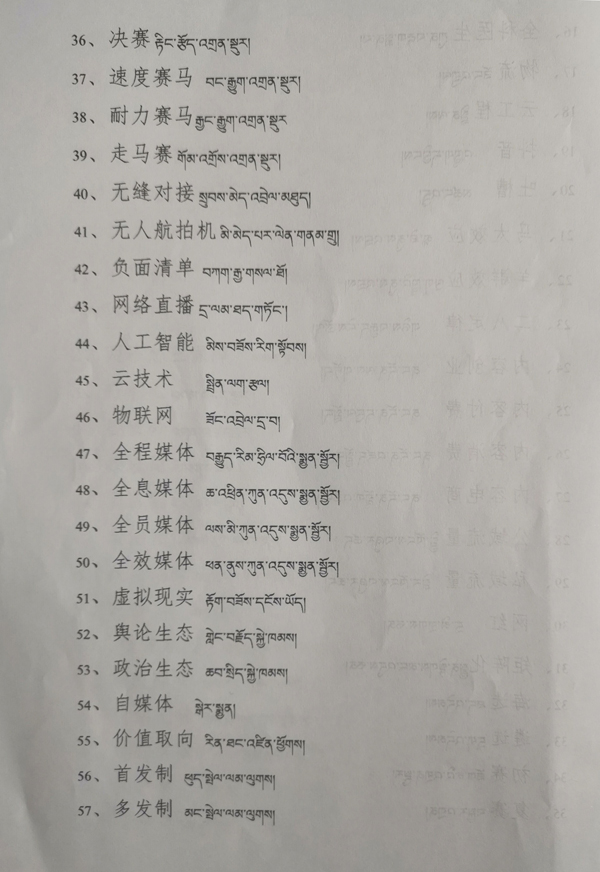 36、决赛 རྟིང་རྩོད་འགྲན་སྡུར།
37、速度赛马 བང་རྒྱུག་འགྲན་སྡུར།
38、耐力赛马 རྒྱང་རྒྱུག་འགྲན་སྡུར
39、走马赛 གོམ་འགྲོས་འགྲན་སྡུར།
40、无缝对接 སྲུབས་མེད་འབྲེལ་མཐུད།
41、无人航拍机 མི་མེད་པར་ལེན་གནམ་གྲུ།
42、负面清单 བཀག་རྒྱ་གསལ་ཐོ།
43、网络直播 དྲ་ལམ་ཐད་གཏོང་།
44、人工智能 མིས་བཟོས་རིག་སྟོབས།
45、云技术 སྤྲིན་ལག་རྩལ།
46、物联网 ཟོང་འབྲེལ་དྲ་བ།
47、全程媒体 བརྒྱུད་རིམ་ཧྲིལ་བོའི་སྨྱན་སྦྱོར།
48、全息媒体 ཆ་འཕྲིན་ཀུན་འདུས་སྨྱན་སྦྱོར།
49、全员媒体 ལས་མི་ཀུན་འདུས་སྨྱན་སྦྱོར།
50、全效媒体 ཕན་ནུས་ཀུན་འདུས་སྨྱན་སྦྱོར།
51、虚拟现实 རྟོག་བཟོས་དངོས་ཡོད།
52、舆论生态 གླེང་བརྗོད་སྐྱེ་ཁམས།
53、政治生态 ཆབ་སྲིད་སྐྱེ་ཁམས།
54、自媒体 སྒེར་སྨྱན།
55、价值取向 རིན་ཐང་འཛིན་ཕྱོགས།
56、首发制 ཕུད་སྤེལ་ལམ་ལུགས།
57、多发制 མང་སྤེལ་ལམ་ལུགས།